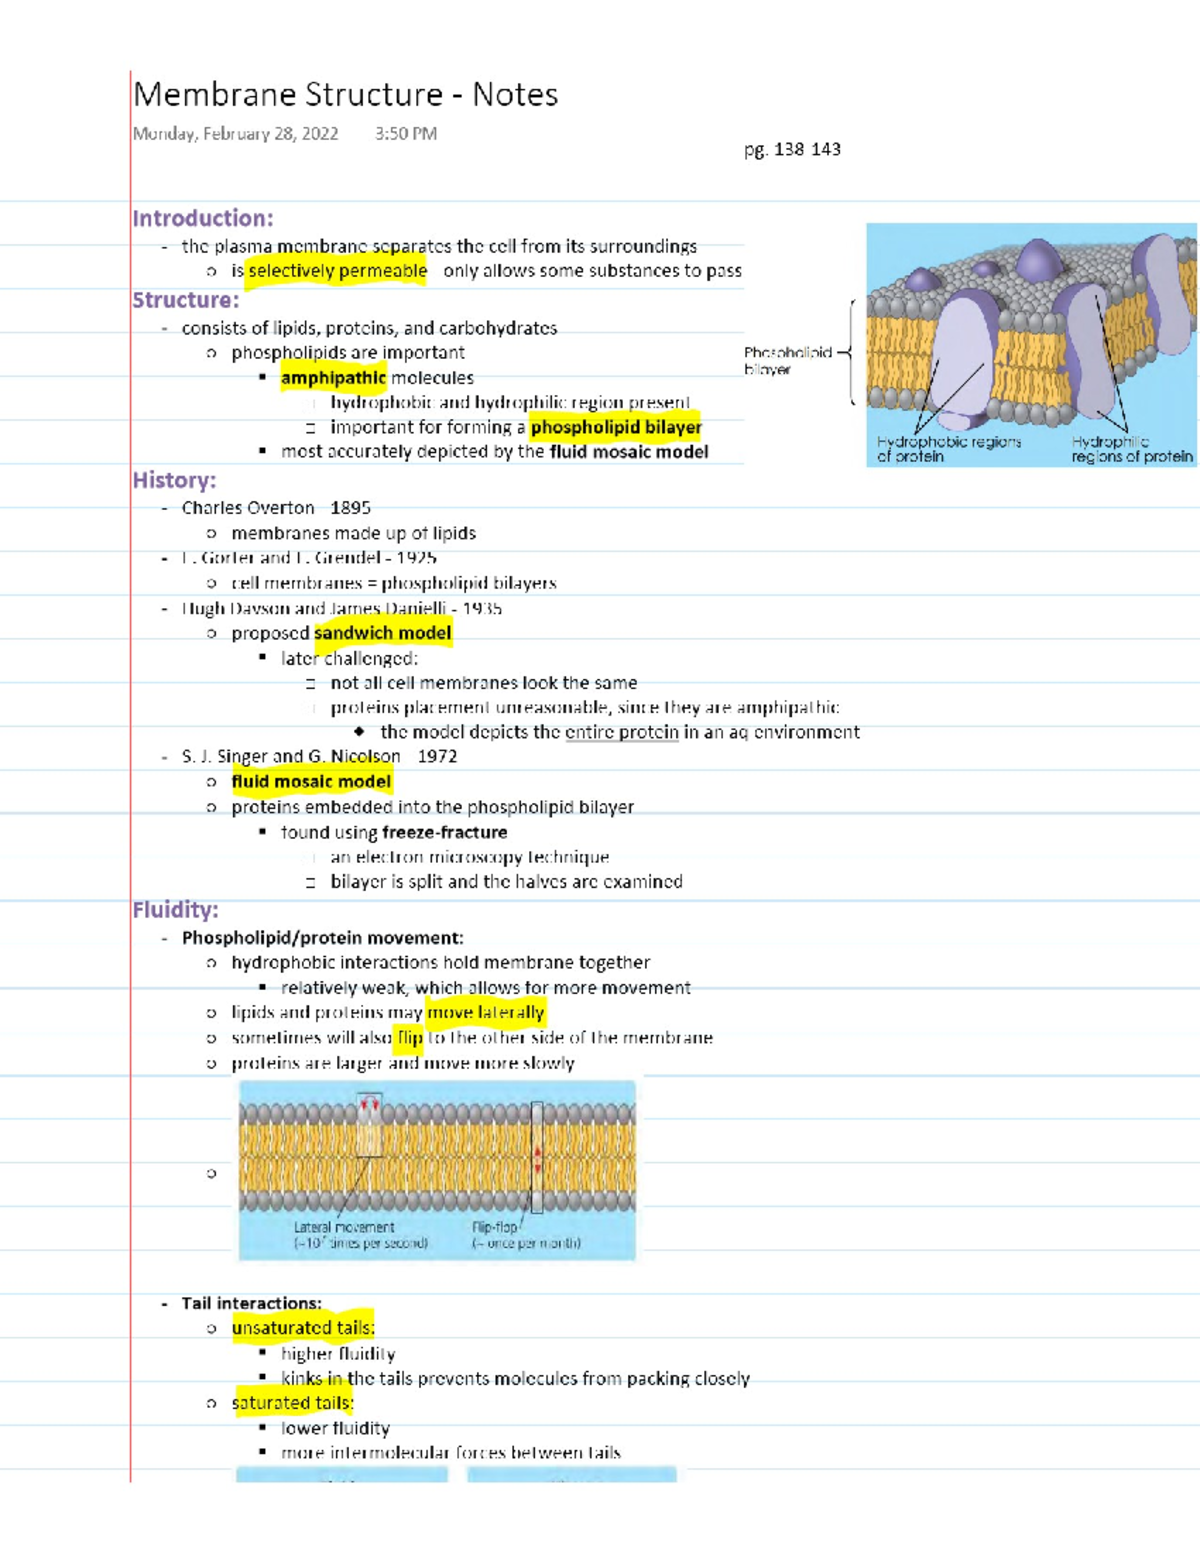 Membrane Structure - Notes
Monday, February 28, 2022 3:50 PM
pg. 138 143
Introduction:
- the plasma membrane separates the cell from its surroundings
is selectively permeable only allows some substances to pass
Structure:
- consists of lipids, proteins, and carbohydrates
phospholipids are important
amphipathic molecules
hydrophobic and hydrophilic region present
important for forming a phospholipid bilayer
most accurately depicted by the fluid mosaic model
Phospholipid bilayer
Hydrophobic regions of protein
Hydrophilic regions of protein
History:
- Charles Overton 1895
membranes made up of lipids
- Gorter and Grendel - 1925
cell membranes = phospholipid bilayers
- Hugh Davson and James Danielli - 1935
proposed sandwich model
later challenged:
not all cell membranes look the same
proteins placement unreasonable, since they are amphipathic
the model depicts the entire protein in an aq environment
- S. J. Singer and G. Nicolson 1972
fluid mosaic model
proteins embedded into the phospholipid bilayer
found using freeze-fracture
an electron microscopy technique
bilayer is split and the halves are examined
Fluidity:
- Phospholipid/protein movement:
hydrophobic interactions hold membrane together
relatively weak, which allows for more movement
lipids and proteins may move laterally
sometimes will also flip to the other side of the membrane
proteins are larger and move more slowly
Lateral movement
(~10⁷ times per second)
Flip-flop
(~ once per month)
- Tail interactions:
unsaturated tails:
higher fluidity
kinks in the tails prevents molecules from packing closely
saturated tails:
lower fluidity
more intermolecular forces between tails